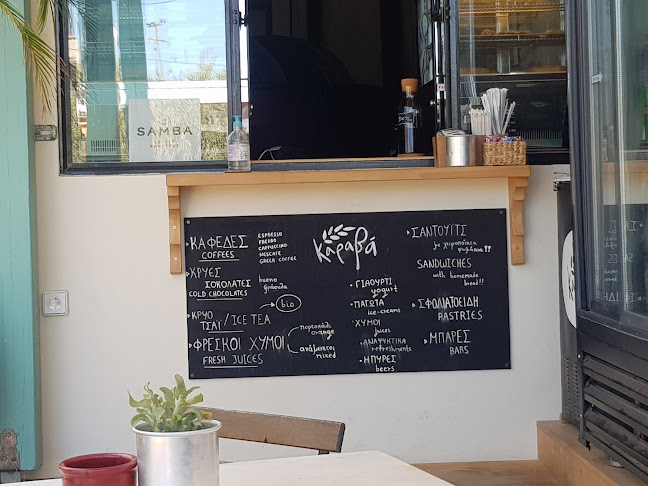 SAMBA
Καραβά
·ΚΑΦΕΔΕΣ
COFFEES
ESPRESSO
FREDDO
CAPPUCCINO
NESCAFE
GREEK COFFEE
·ΚΡΥΕΣ
ΣΟΚΟΛΑΤΕΣ
COLD CHOCOLATES
bueno
φράουλα
·ΚΡΥΟ
ΤΣΑΪ / ICE TEA
bio
·ΦΡΕΣΚΟΙ ΧΥΜΟΙ
FRESH JUICES
πορτοκάλι
orange
ανάμεικτοι
mixed
·ΓΙΑΟΥΡΤΙ
yogurt
·ΠΑΓΩΤΑ
ice-creams
·ΧΥΜΟΙ
juices
·ΑΝΑΨΥΚΤΙΚΑ
refreshments
·ΜΠΥΡΕΣ
beers
·ΣΑΝΤΟΥΙΤΣ
με χειροποίητα
ψωμάκια!!
SANDWICHES
with homemade
bread!!
·ΣΦΟΛΙΑΤΟΕΙΔΗ
PASTRIES
·ΜΠΑΡΕΣ
BARS